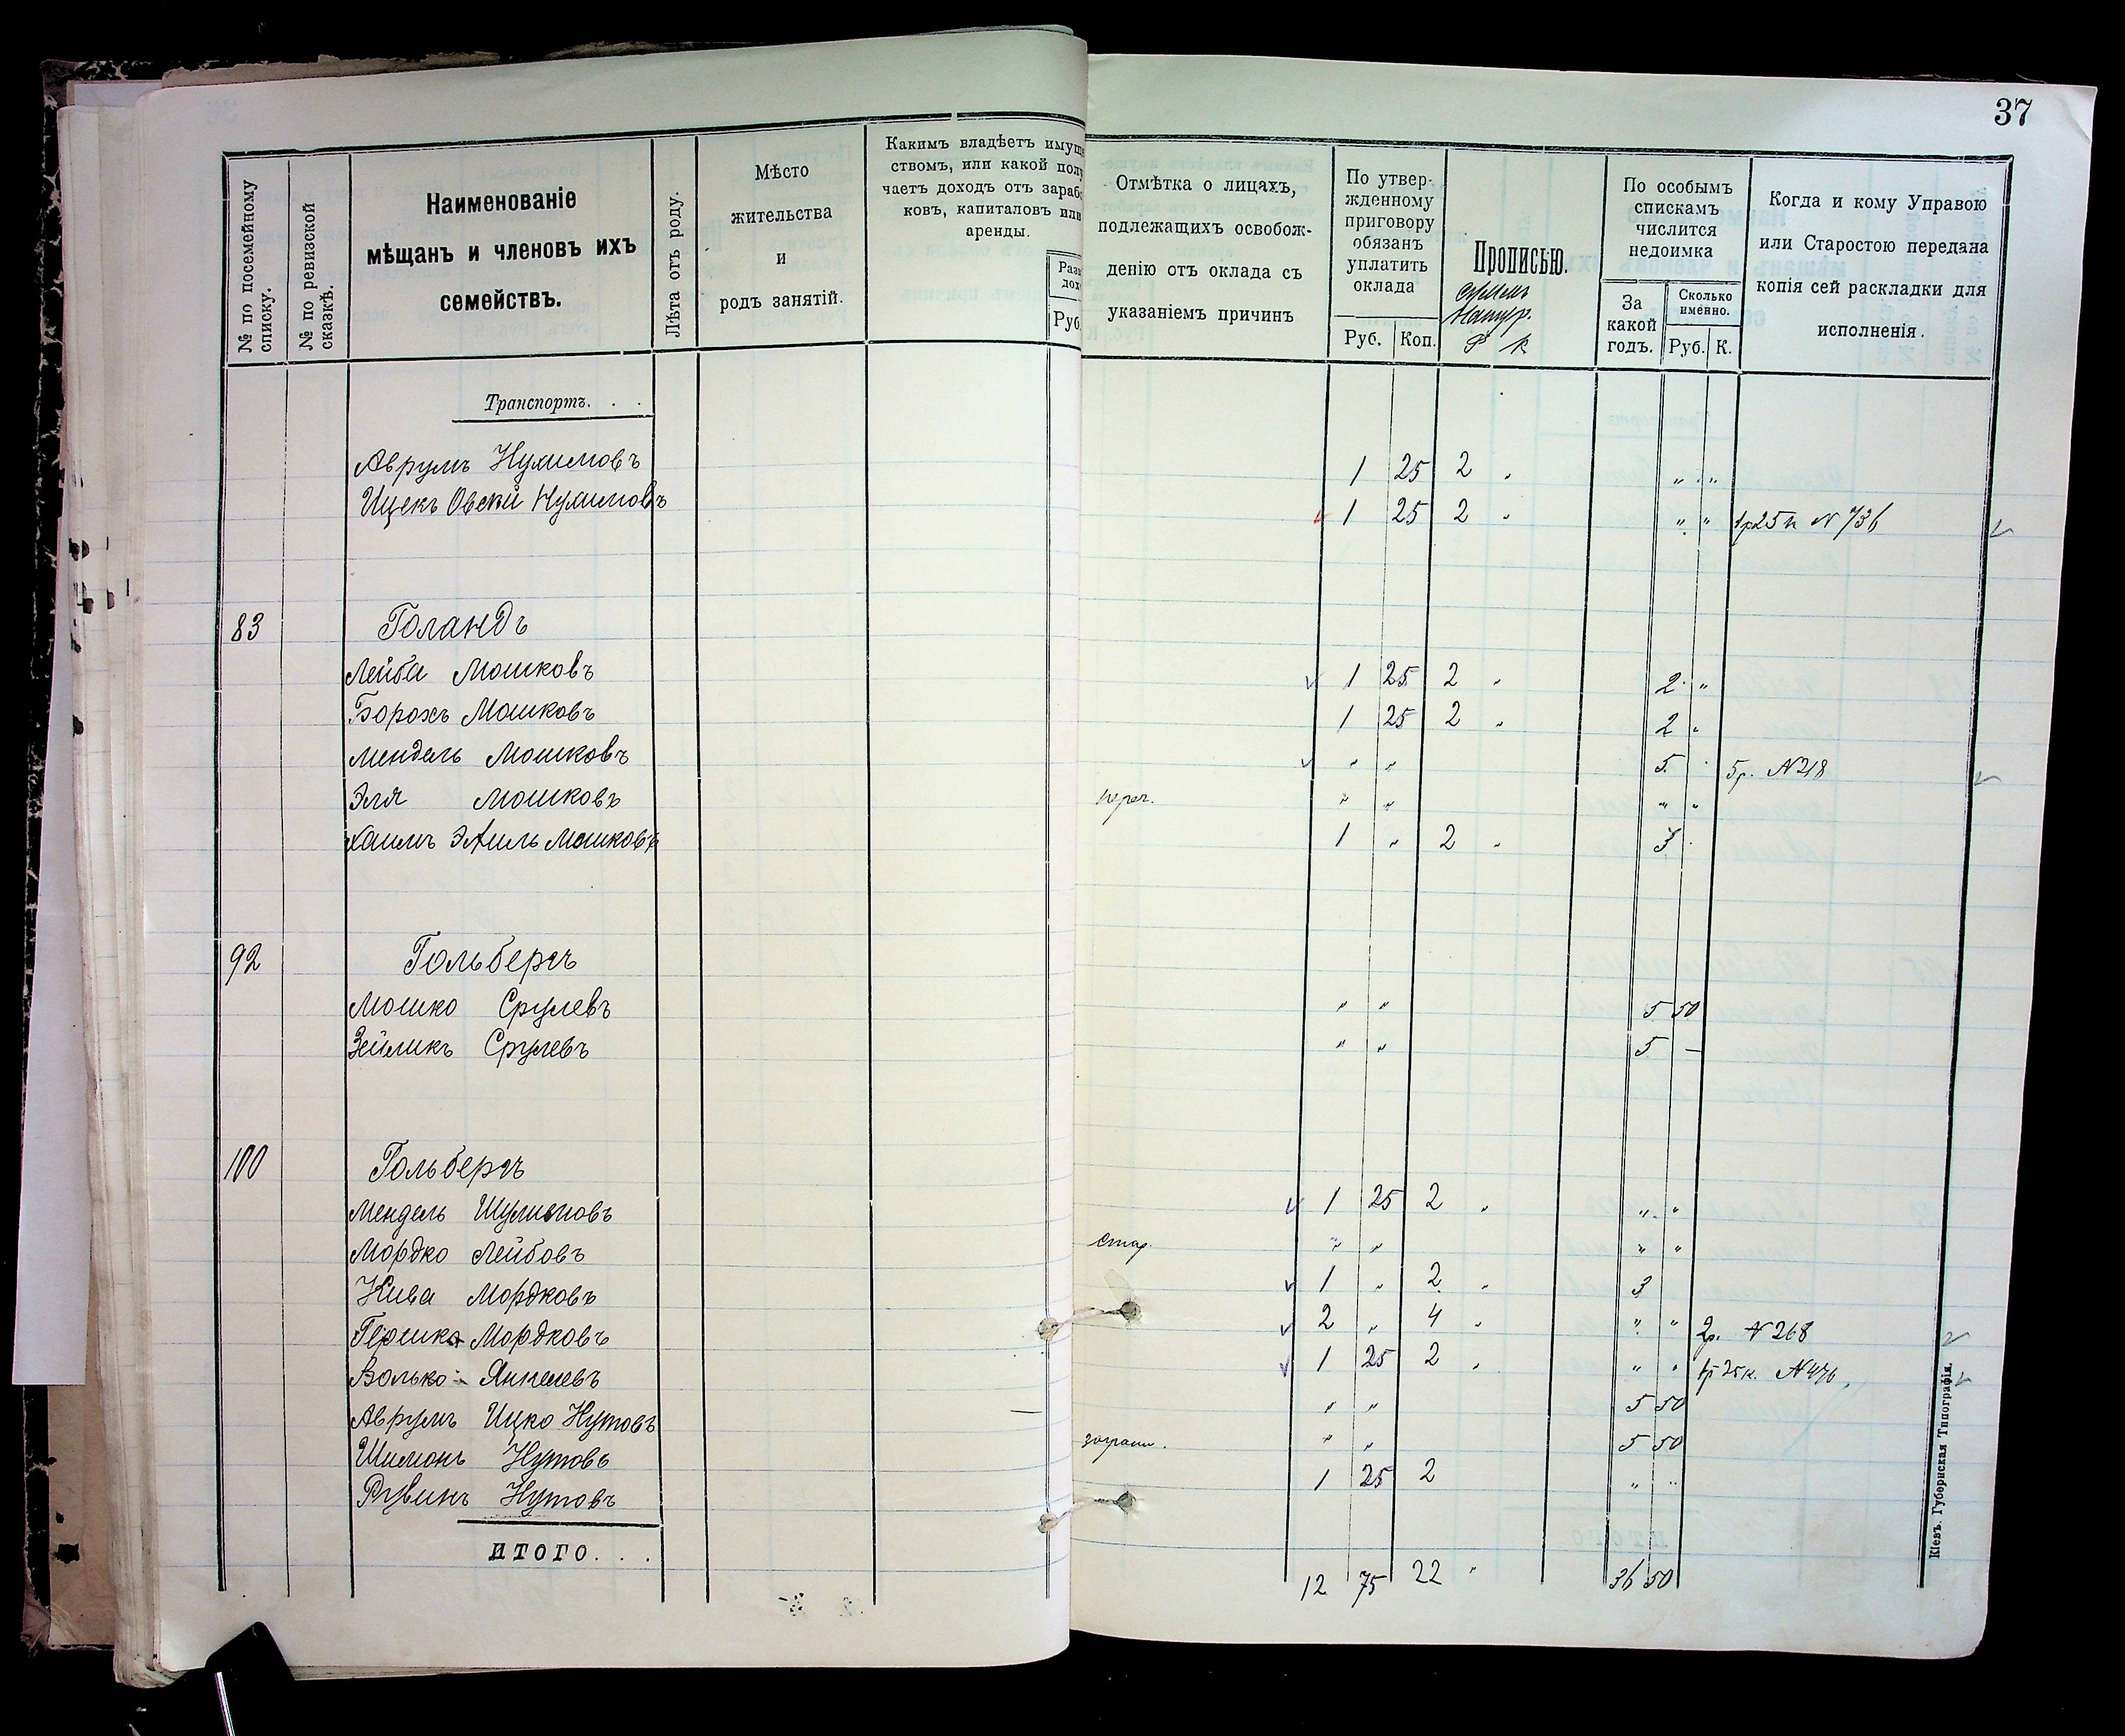 37
№ по посемейному списку.
№ по ревизской сказкѣ.
Наименованіе
мѣщанъ и членовъ ихъ
семействъ.
Лѣта отъ роду.
Мѣсто
жительства
и
родъ занятій.
Какимъ владѣетъ имуще
ствомъ, или какой полу
чаетъ доходъ отъ зарабо
ковъ, капиталовъ или
аренды.
Разм
дох
Руб.
Отмѣтка о лицахъ,
подлежащихъ освобож-
денію отъ оклада съ
указаніемъ причинъ
По утвер-
жденному
приговору
обязанъ
уплатить
оклада
Руб. Коп.
Прописью.
Р К
По особымъ
спискамъ
числится
недоимка
За
какой
годъ.
Сколько
именно.
Руб. К.
Когда и кому Управою
или Старостою передана
копія сей раскладки для
исполненія.
Транспортъ. . .
Аврумъ Нухимовъ 1 25 2 " " "
Ицекъ Овсей Нухимовъ 1 25 2 " " " 1р25к N 736
83 Голандъ
Лейба Мошковъ 1 25 2 " 2 "
Борохъ Мошковъ 1 25 2 " 2 "
Мендель Мошковъ " " 5 5р. N218
Эля Мошковъ " " " "
Хаимъ Мошковъ 1 " 2 " 3
92 Гольбергъ
Мошко Срулевъ " " 5 50
Зейликъ Срулевъ " " 5 —
100 Гольбергъ
Мендель Шулимовъ 1 25 2 " " "
Мордко Лейбовъ стар. " " " "
Кива Мордковъ 1 " 2 " 3
Гершко Мордковъ 2 " 4 " " " 2р. N 268
Волько Янкелевъ 1 25 2 " " " 1р 25к. N476
Аврумъ Ицко Нутовъ " " 5 50
Шимонъ Нутовъ заграни. " " 5 50
Рувинъ Нутовъ 1 25 2 " "
ИТОГО. . .
12 75 22 " 36 50
Кіевъ. Губернская Типографія.